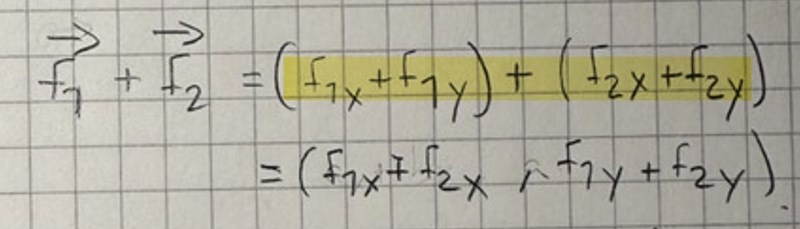 f₁⃗ + f₂⃗ = (f₁ₓ + f₁y) + (f₂ₓ + f₂y)
= (f₁ₓ + f₂ₓ , f₁y + f₂y).